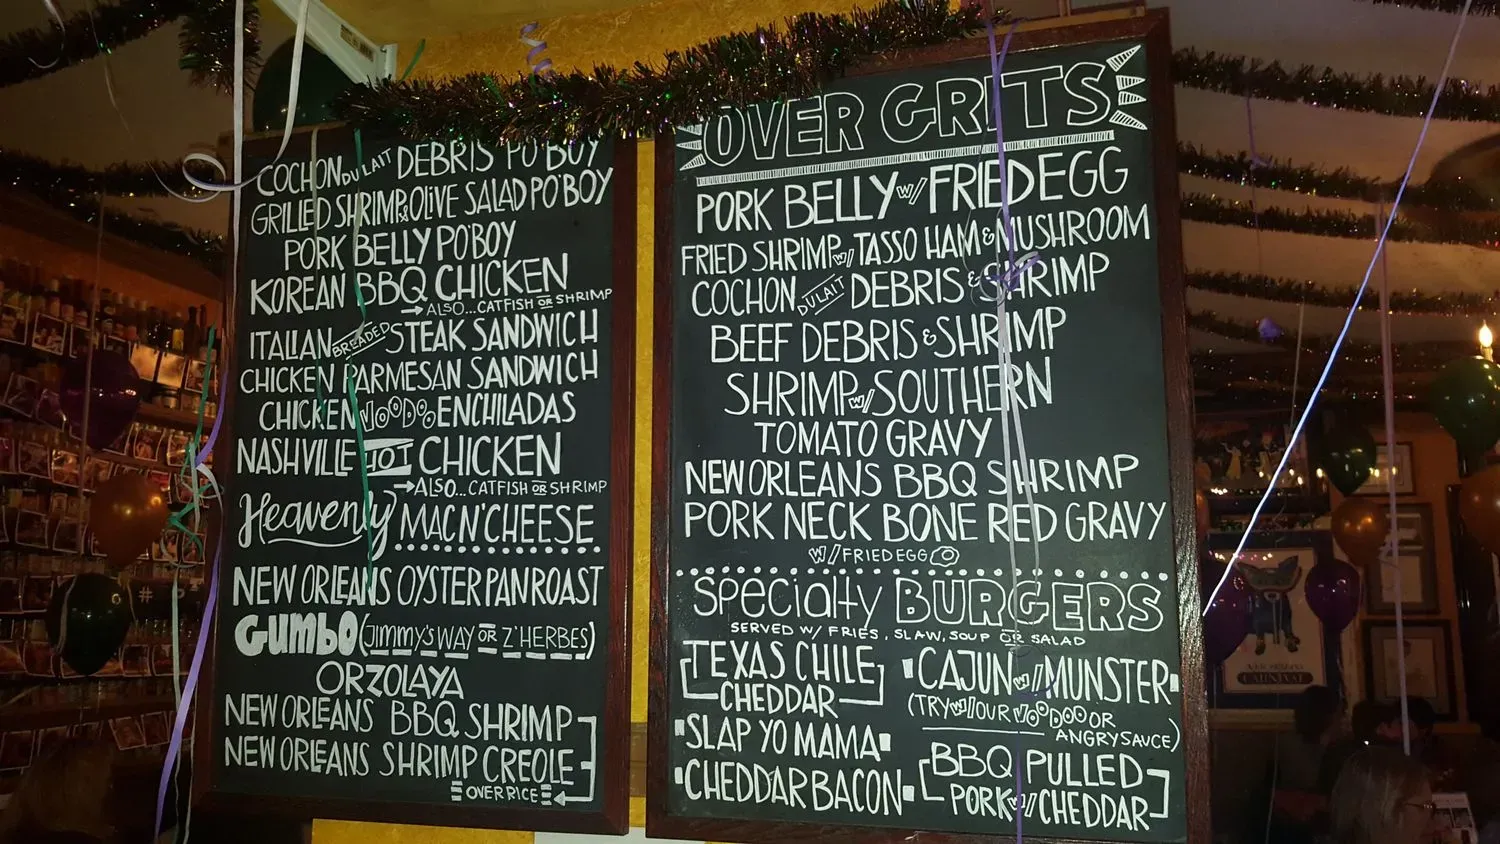 COCHON DU LAIT DEBRIS PO'BOY
GRILLED SHRIMP & OLIVE SALAD PO'BOY
PORK BELLY PO'BOY
KOREAN BBQ CHICKEN
→ ALSO... CATFISH OR SHRIMP
ITALIAN BREADED STEAK SANDWICH
CHICKEN PARMESAN SANDWICH
CHICKEN VOODOO ENCHILADAS
NASHVILLE HOT CHICKEN
→ ALSO... CATFISH OR SHRIMP
Heavenly MAC N' CHEESE
NEW ORLEANS OYSTER PAN ROAST
GUMBO (JIMMY'S WAY OR Z'HERBES)
ORZOLAYA
NEW ORLEANS BBQ SHRIMP
NEW ORLEANS SHRIMP CREOLE
OVER RICE
OVER GRITS
PORK BELLY W/ FRIED EGG
FRIED SHRIMP W/ TASSO HAM & MUSHROOM
COCHON DU LAIT DEBRIS & SHRIMP
BEEF DEBRIS & SHRIMP
SHRIMP W/ SOUTHERN
TOMATO GRAVY
NEW ORLEANS BBQ SHRIMP
PORK NECK BONE RED GRAVY
W/ FRIED EGG
Specialty BURGERS
SERVED W/ FRIES, SLAW, SOUP OR SALAD
TEXAS CHILE
CHEDDAR
SLAP YO MAMA
CHEDDAR BACON
CAJUN W/ MUNSTER
(TRY W/ OUR VOODOO OR
ANGRY SAUCE)
BBQ PULLED
PORK W/ CHEDDAR
CARNIVAL